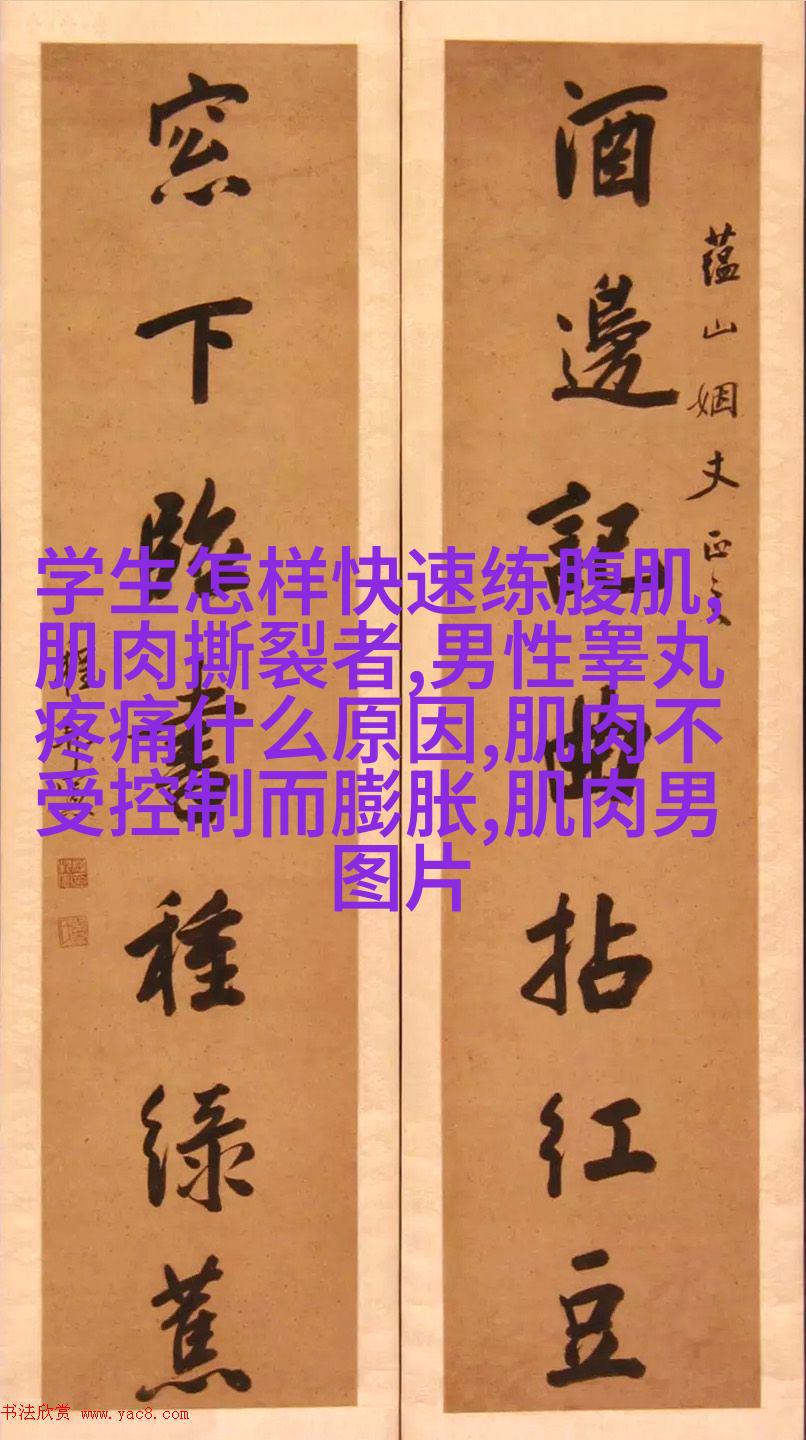 酒邊記曲拈红豆
蕴山姻丈正之
窓下臨書種绿蕉
学生怎样快速练腹肌,
肌肉撕裂者,男性睾丸
疼痛什么原因,肌肉不
受控制而膨胀,肌肉男
图片
书法欣赏 www.yac8.com